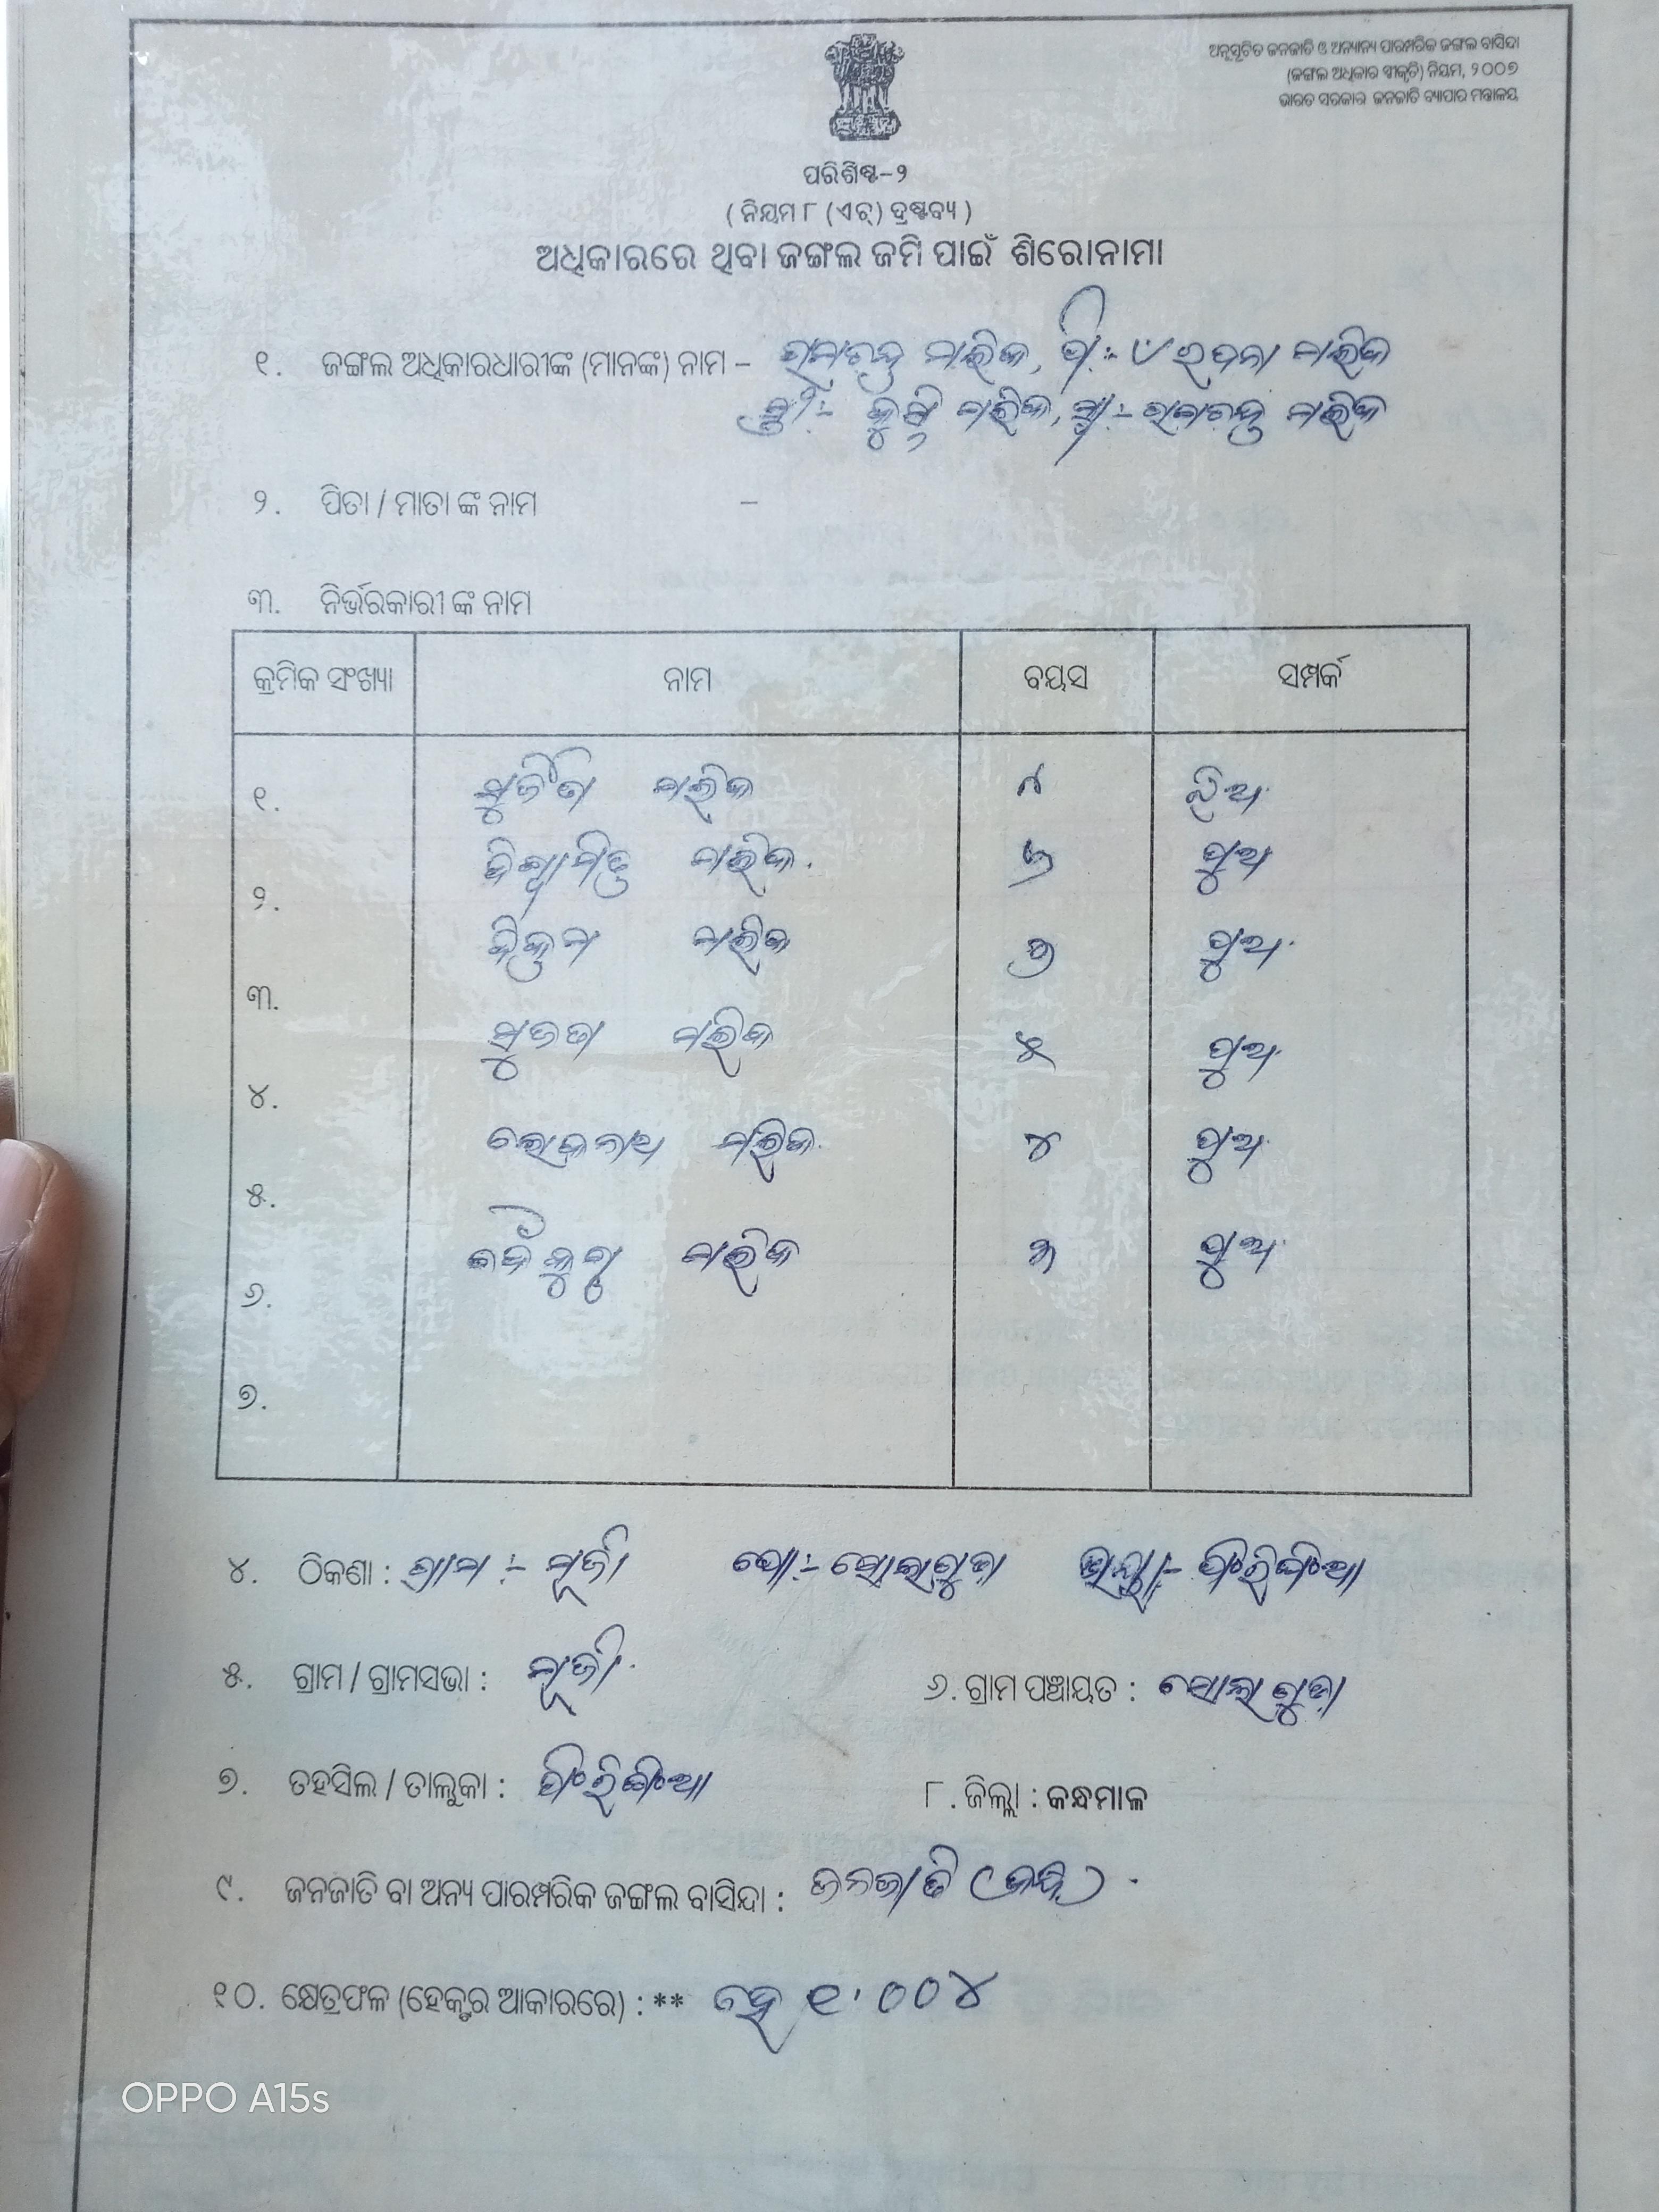 ଅନୁସୂଚିତ ଜନଜାତି ଓ ଅନ୍ୟାନ୍ୟ ପାରମ୍ପରିକ ଜଙ୍ଗଲ ବାସିନ୍ଦା
(ଜଙ୍ଗଲ ଅଧିକାର ସ୍ୱୀକୃତି) ନିୟମ, ୨୦୦୭
ଭାରତ ସରକାର ଜନଜାତି ବ୍ୟାପାର ମନ୍ତ୍ରାଳୟ
ପରିଶିଷ୍ଟ-୨
( ନିୟମ ୮ (ଏଚ୍) ଦ୍ରଷ୍ଟବ୍ୟ )
ଅଧିକାରରେ ଥିବା ଜଙ୍ଗଲ ଜମି ପାଇଁ ଶିରୋନାମା
୧. ଜଙ୍ଗଲ ଅଧିକାରଧାରୀଙ୍କ (ମାନଙ୍କ) ନାମ – ରାମଚନ୍ଦ୍ର ମଲିକ, ପି:- ମଲିକ
ସ୍ତ୍ରୀ:- ମଲିକ, ସ୍ୱା:- ରାମଚନ୍ଦ୍ର ମଲିକ
୨. ପିତା / ମାତା ଙ୍କ ନାମ –
୩. ନିର୍ଭରକାରୀ ଙ୍କ ନାମ
କ୍ରମିକ ସଂଖ୍ୟା ନାମ ବୟସ ସମ୍ପର୍କ
୧. ସୁଜିତା ମଲିକ ୮ ଝିଅ
୨. ବିଶ୍ୱାମିତ୍ର ମଲିକ ୭ ପୁଅ
୩. ବିକ୍ରମ ମଲିକ ପୁଅ
୪. ମଲିକ ୫ ପୁଅ
୫. ଲୋକନାଥ ମଲିକ ୪ ପୁଅ
୬. ବୈକୁଣ୍ଠ ମଲିକ ୩ ପୁଅ
୭.
୪. ଠିକଣା : ଗ୍ରାମ :- ପୋ:- ସୋଲାଗୁଡା ଫିରିଙ୍ଗିଆ
୫. ଗ୍ରାମ / ଗ୍ରାମସଭା :
୬. ଗ୍ରାମ ପଞ୍ଚାୟତ : ସୋଲାଗୁଡା
୭. ତହସିଲ / ତାଲୁକା : ଫିରିଙ୍ଗିଆ
୮. ଜିଲ୍ଲା : କନ୍ଧମାଳ
୯. ଜନଜାତି ବା ଅନ୍ୟ ପାରମ୍ପରିକ ଜଙ୍ଗଲ ବାସିନ୍ଦା : ଜନଜାତି (କନ୍ଧ)
୧୦. କ୍ଷେତ୍ରଫଳ (ହେକ୍ଟର ଆକାରରେ) : ** ହେ ୧.୦୦୪
OPPO A15s